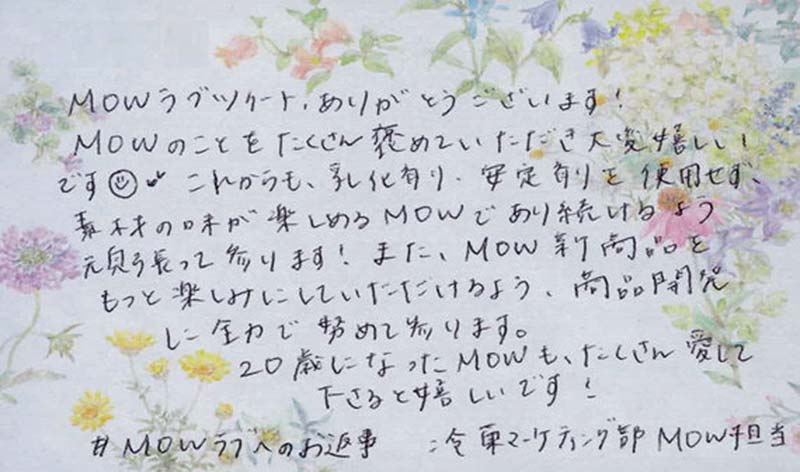 MOWラブツイート、ありがとうございます!
MOWのことをたくさん褒めていただき大変嬉しい!
です これからも、乳化剤・安定剤を使用せず、
素材の味が楽しめるMOWであり続けるよう
頑張って参ります!また、MOW新商品を
もっと楽しみにしていただけるよう、商品開発
に全力で努めて参ります。
20歳になったMOWも、たくさん愛して
下さると嬉しいです!
#MOWラブへのお返事 冷菓マーケティング部 MOW担当